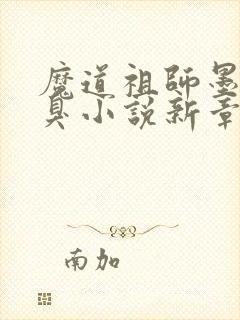 魔道祖師墨
臭小説新章
南加